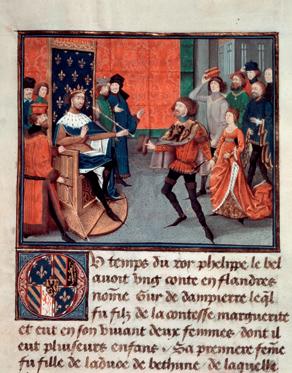 Du temps du roy phelippe le bel
avoit ung conte en flandres
nome Gui de dampierre leql
fu filz de la contesse marguerite
et eut en son vivant deux femmes dont il
eut plusieurs enfans Sa premiere feme
fu fille de laduoe de bethune de laquelle